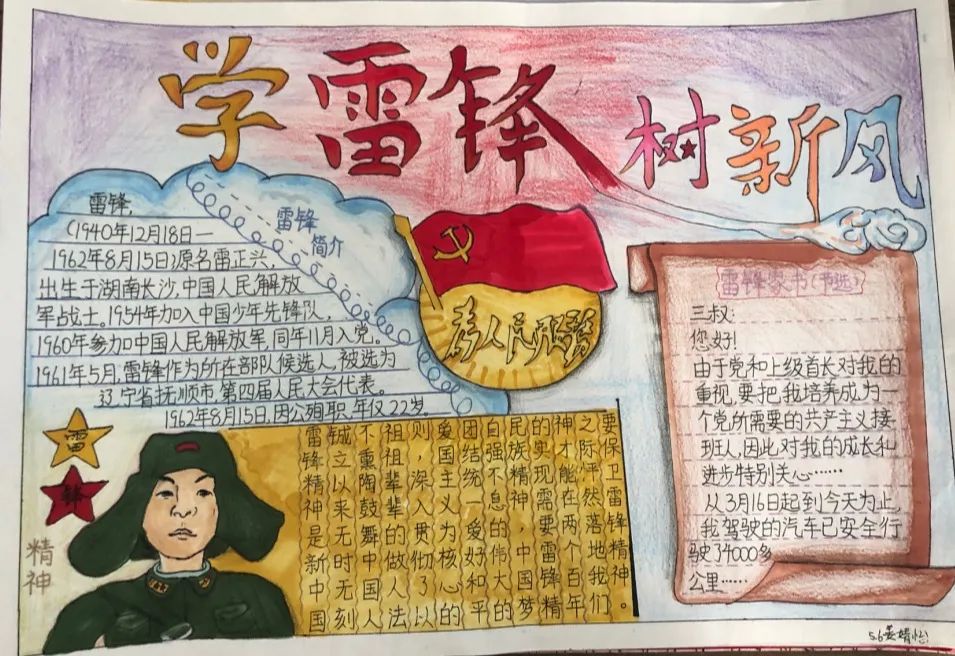 学雷锋
树新风
雷锋简介
雷锋,
(1940年12月18日—
1962年8月15日)原名雷正兴,
出生于湖南长沙,中国人民解放
军战士。1954年加入中国少年先锋队,
1960年参加中国人民解放军,同年11月入党。
1961年5月,雷锋作为所在部队候选人,被选为
辽宁省抚顺市第四届人民大会代表。
1962年8月15日,因公殉职,年仅22岁。
为人民服务
雷锋家书(节选)
三叔:
您好!
由于党和上级首长对我的
重视,要把我培养成为一
个党所需要的共产主义接
班人,因此对我的成长和
进步特别关心……
从3月16日起到今天为止,
我驾驶的汽车已安全行
驶34000多
公里……
雷
锋
精神
雷锋精神是新中国
诚立以来无时无刻
不熏陶鼓舞中国人
祖祖辈辈的做人法
则,深入贯彻了以
爱国主义为核心的
团结统一 爱好和平
自强不息的伟大的
民族精神 中国梦
的实现需要雷锋精
神才能在两个百年
之际怦然落地我们
要保卫雷锋精神。
5.6